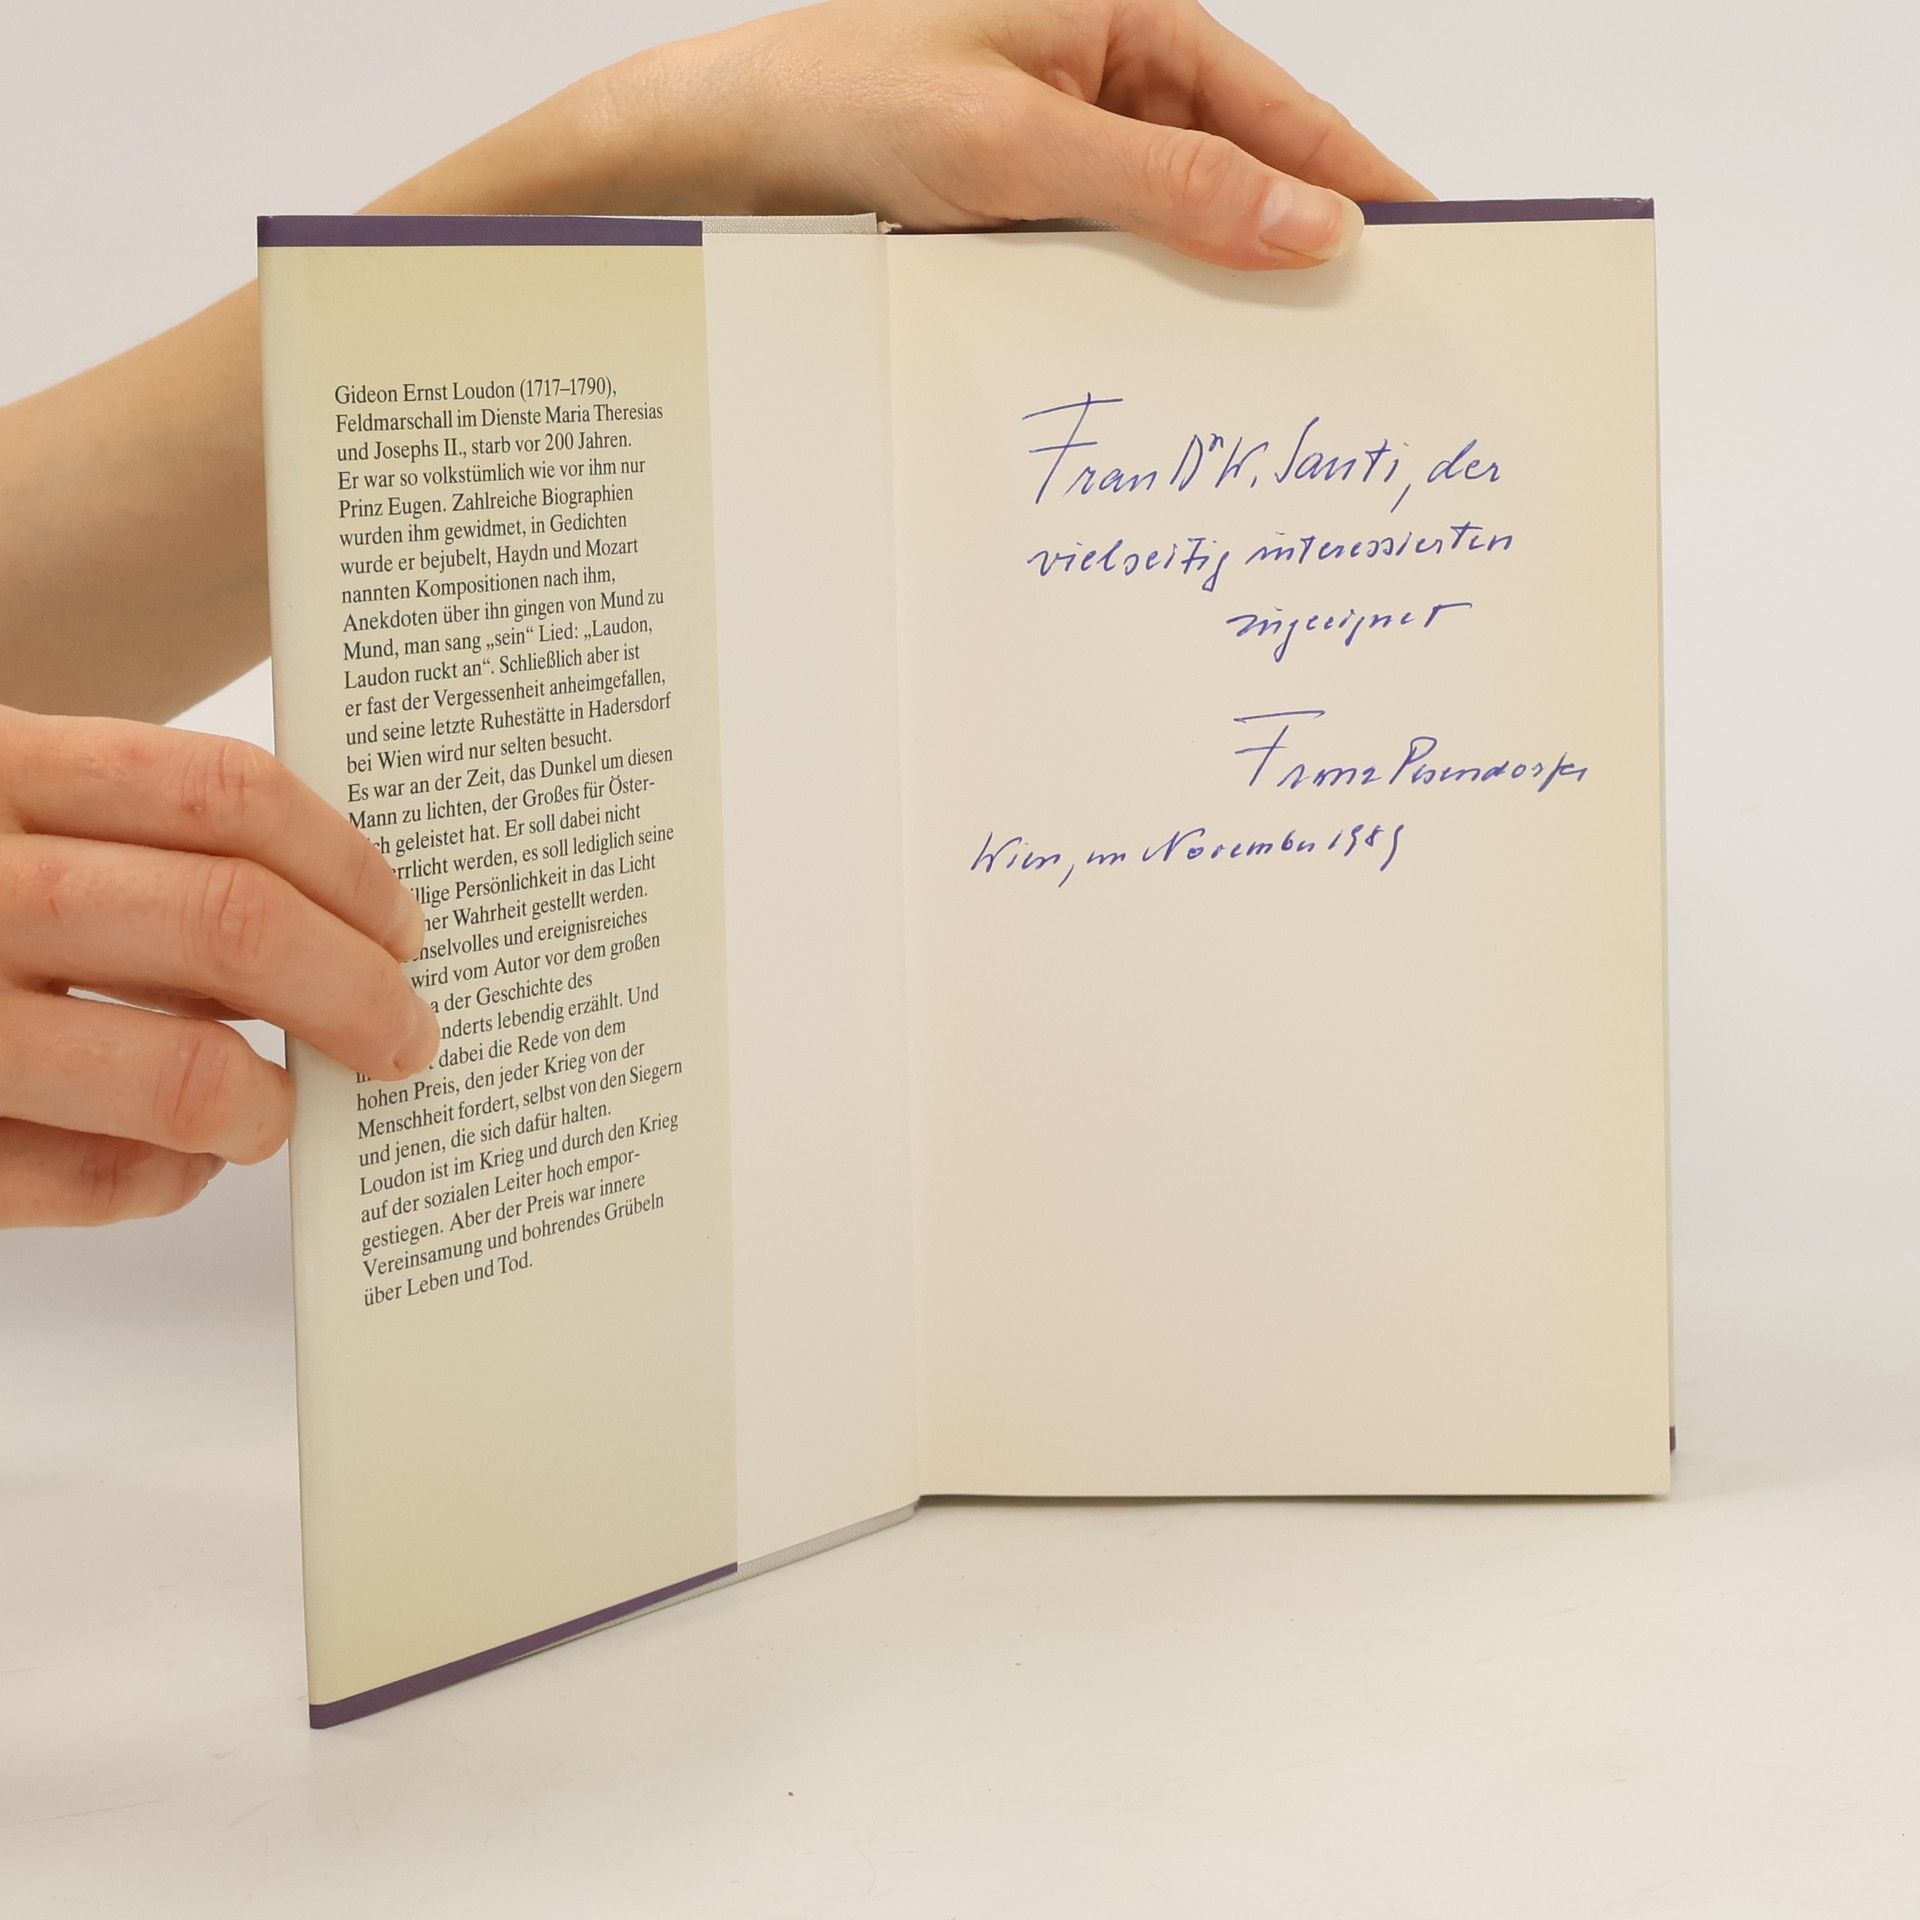 Gideon Ernst Loudon (1717–1790),
Feldmarschall im Dienste Maria Theresias
und Josephs II., starb vor 200 Jahren.
Er war so volkstümlich wie vor ihm nur
Prinz Eugen. Zahlreiche Biographien
wurden ihm gewidmet, in Gedichten
wurde er bejubelt, Haydn und Mozart
nannten Kompositionen nach ihm,
Anekdoten über ihn gingen von Mund zu
Mund, man sang „sein“ Lied: „Laudon,
Laudon ruckt an“. Schließlich aber ist
er fast der Vergessenheit anheimgefallen,
und seine letzte Ruhestätte in Hadersdorf
bei Wien wird nur selten besucht.
Es war an der Zeit, das Dunkel um diesen
Mann zu lichten, der Großes für Öster-
ch geleistet hat. Er soll dabei nicht
rrlicht werden, es soll lediglich seine
llige Persönlichkeit in das Licht
her Wahrheit gestellt werden.
hselvolles und ereignisreiches
wird vom Autor vor dem großen
a der Geschichte des
nderts lebendig erzählt. Und
dabei die Rede von dem
hohen Preis, den jeder Krieg von der
Menschheit fordert, selbst von den Siegern
und jenen, die sich dafür halten.
Loudon ist im Krieg und durch den Krieg
auf der sozialen Leiter hoch empor-
gestiegen. Aber der Preis war innere
Vereinsamung und bohrendes Grübeln
über Leben und Tod.
Frau Dr W. Santi, der
vielseitig interessierten
zugeeignet
Franz Pesendorfer
Wien, im November 1989